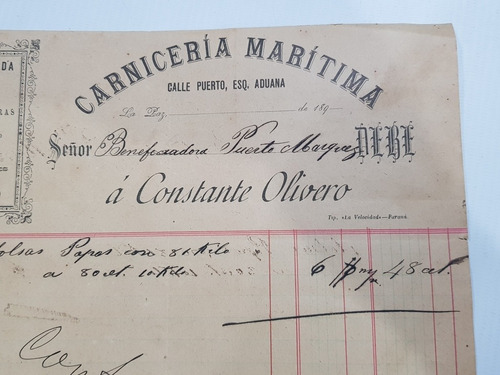 DA
RAS
CARNICERÍA MARÍTIMA
CALLE PUERTO, ESQ. ADUANA
La Paz, de 189
Señor Benefixadora Puerto Marquez DEBE
á Constante Olivero
Tip. «La Velocidad»—Paraná.
olsas Papas con 81 kilo
a 80 ct. 10 kilo 6 $ m/n 48 ct.